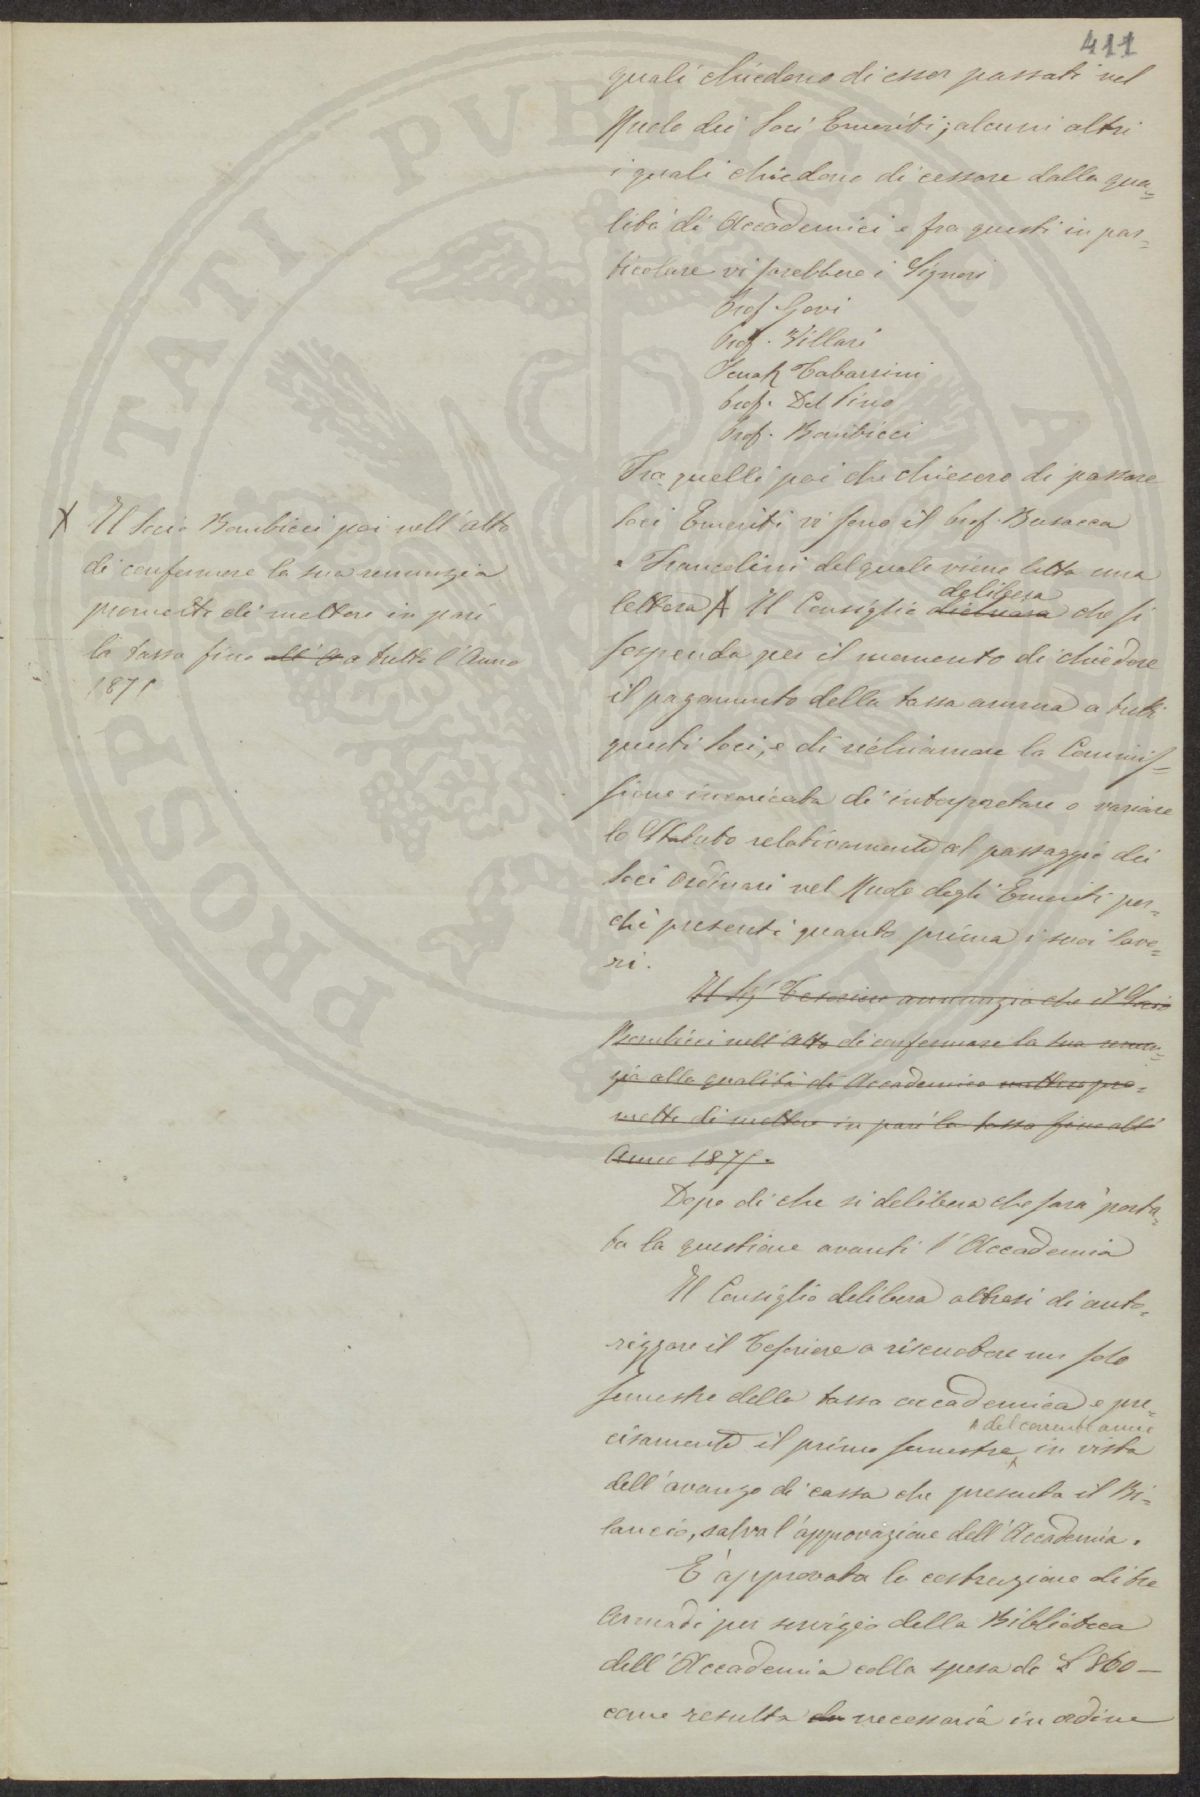 411
quali chiedono di esser passati nel
Ruolo dei Soci Emeriti; alcuni altri
i quali chiedono di cessare dalla qua=
lità di Accademici e fra questi in par=
ticolare vi sarebbero i Signori
Prof. Govi
Prof. Villari
Senat. Tabarrini
Prof. Del Pino
Prof. Bombicci
Fra quelli poi che chiesero di passare
Soci Emeriti vi sono il Prof. Busacca
e Francolini del quale viene letta una
lettera X Il Consiglio dichiara delibera che si
sospenda per il momento di chiedere
il pagamento della tassa annua a tutti
questi Soci, e di richiamare la Commis=
sione incaricata di interpretare o variare
lo Statuto relativamente al passaggio dei
Soci Ordinari nel Ruolo degli Emeriti per=
chè presenti quanto prima i suoi lavo=
ri.
Il Sig. Tesoriere annunzia che il Socio
Bombicci nell'atto di confermare la sua renun=
zia alla qualità di Accademico pro=
mette di mettere in pari la tassa fino all'
Anno 1875.
Dopo di che si delibera che sarà porta=
ta la questione avanti l'Accademia
Il Consiglio delibera altresì di auto=
rizzare il Tesoriere a riscuotere un solo
semestre della tassa accademica e pre=
cisamente il primo semestre del corrente anno in vista
dell'avanzo di cassa che presenta il Bi=
lancio, salva l'approvazione dell'Accademia.
È approvata la costruzione di tre
Armadi per servigio della Biblioteca
dell'Accademia colla spesa di £ 860 —
come resulta necessaria in ordine
X Il Socio Bombicci poi nell'atto
di confermare la sua renunzia
promette di mettere in pari
la tassa fino a tutto l'Anno
1875
PROSPERITATI PVBLICAE AVGENDAE